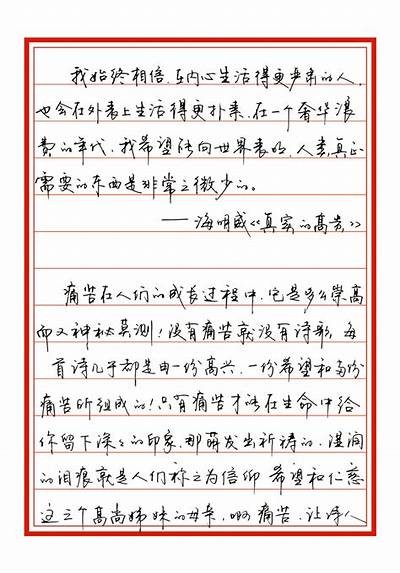 我始终相信,在内心生活得更严肃的人,
也会在外表上生活得更朴素,在一个奢华浪
费的年代,我希望能向世界表明,人类真正
需要的东西是非常之微少的。
——海明威《真实的高贵》
痛苦在人们的成长过程中,它是多么崇高
而又神秘莫测!没有痛苦就没有诗歌,每
首诗几乎都是由一份高兴,一份希望和两份
痛苦所组成的!只有痛苦才能在生命中给
你留下深深的印象,那萌发出祈祷的,湿润
的泪痕就是人们称之为信仰 希望和仁慈
这三个高尚姊妹的母亲,啊痛苦,让诗人